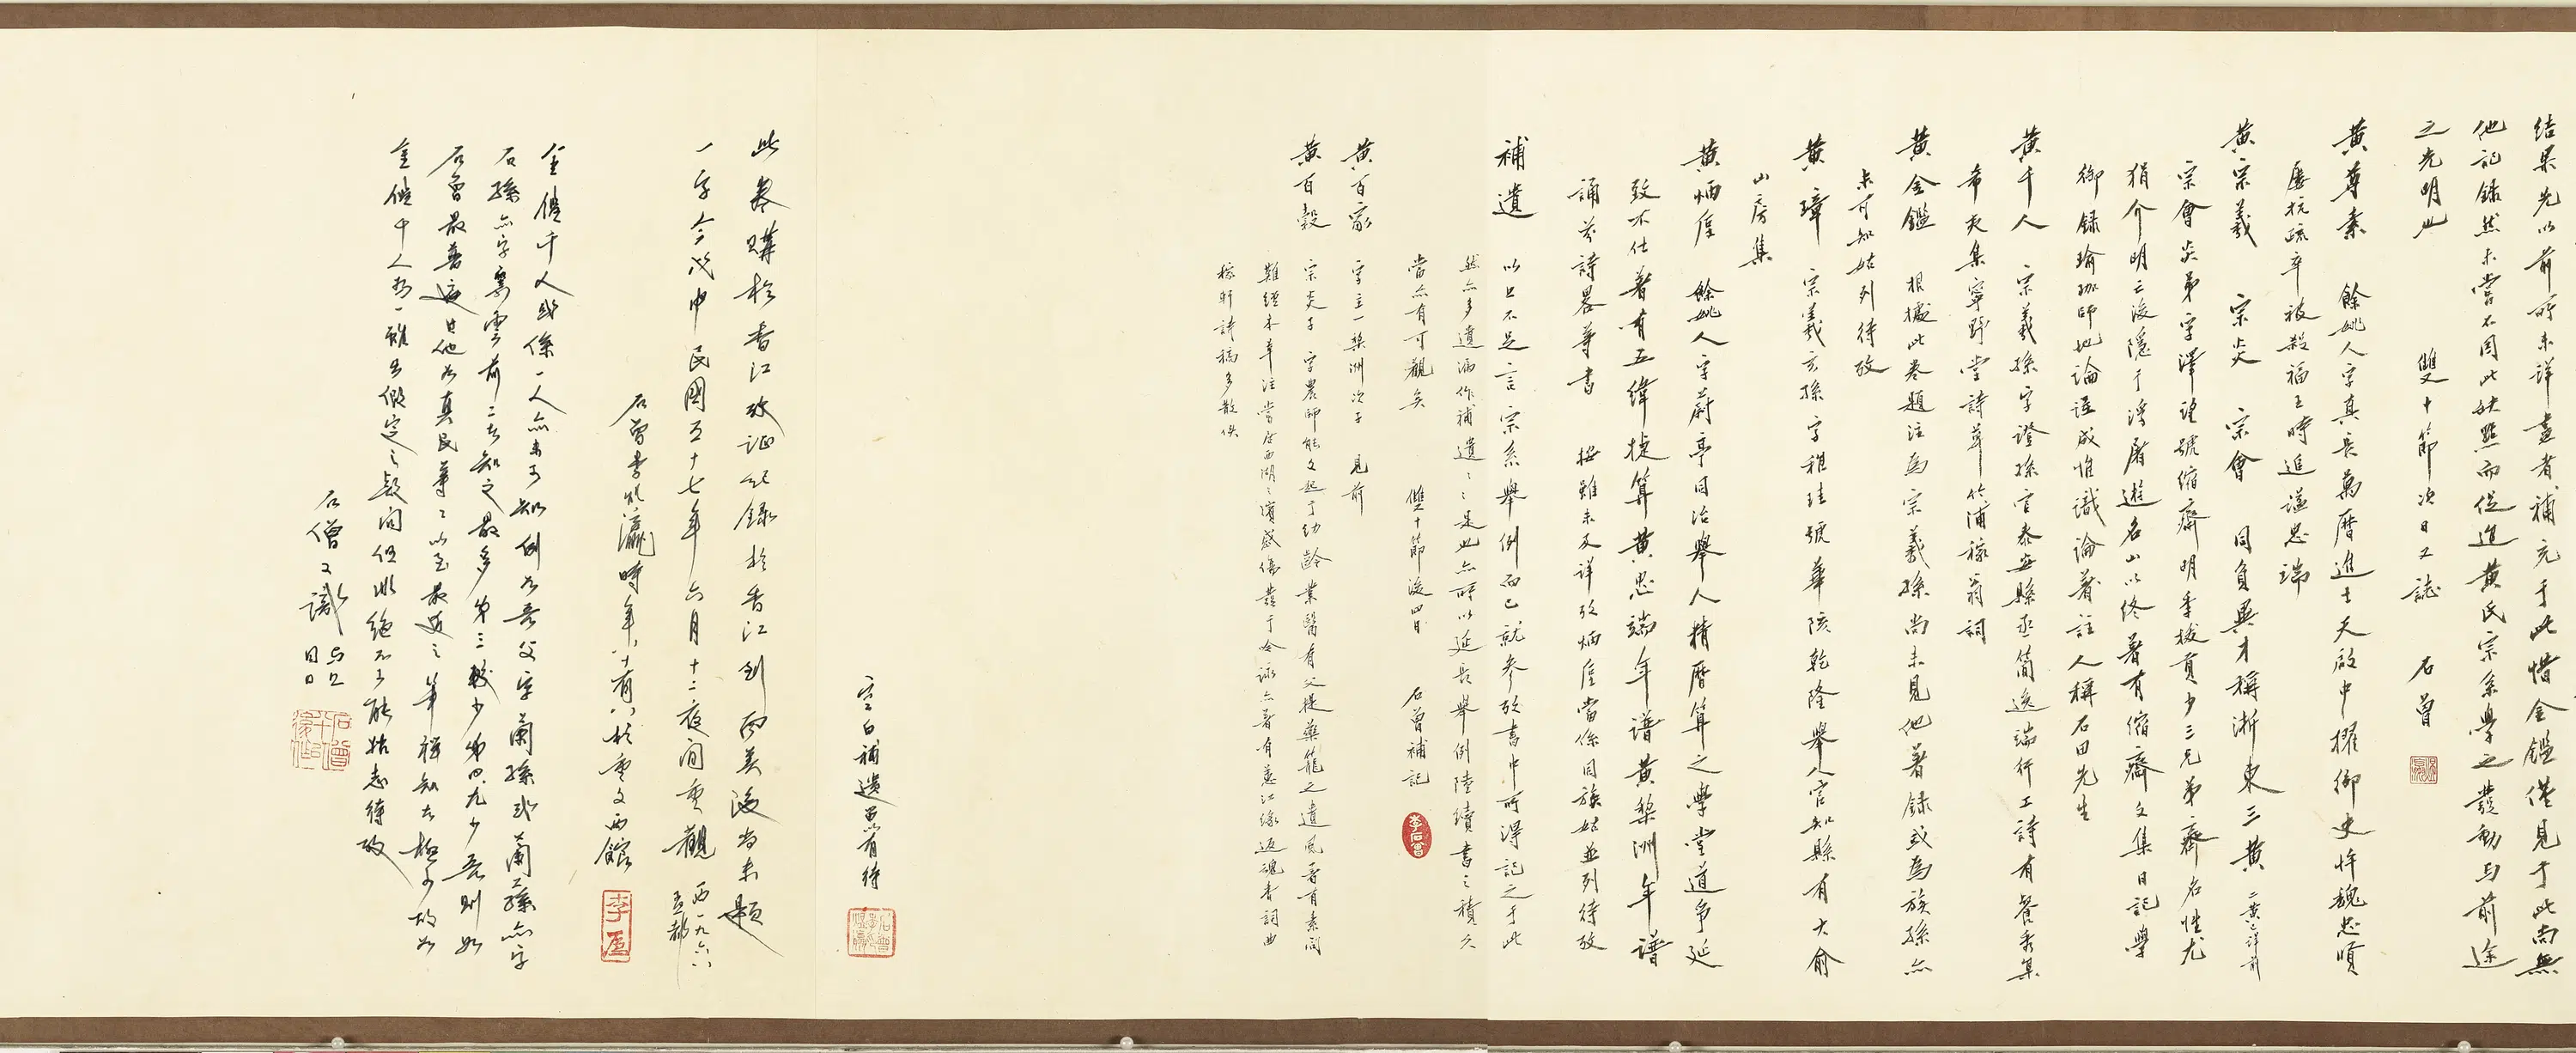 結果先以前所未詳盡者補充于此惜金鑑僅見于此尚無
他記錄然未嘗不因此缺點而促進黃氏宗系學之發動與前途
之光明也
雙十節次日又誌 石曾
黃尊素 餘姚人字真長萬曆進士天啟中擢御史忤魏忠賢
屢抗疏卒被殺福王時追謚忠端
黃宗羲 宗炎 宗會 同負異才稱浙東三黃 二黃已詳前
宗會炎弟字澤望號縮齋明季拔貢少三兄弟齊名性尤
狷介明亡後隱于浮屠遊名山以終著有縮齋文集日記學
御錄瑜珈師地論註成惟識論著註人稱石田先生
黃千人 宗羲孫字證孫官泰安縣丞簡逸端行工詩有餐秀集
希夫集寧野堂詩草竹浦稼翁詞
黃金鑑 根據此卷題注為宗羲孫尚未見他著錄或為族孫亦
未可知姑列待攷
黃璋 宗羲玄孫字稚圭號華陔乾隆舉人官知縣有大俞
山房集
黃炳垕 餘姚人字蔚亭同治舉人精曆算之學堂道爭延
致不仕著有五緯捷算黃忠端年譜黃棃洲年譜
誦芬詩畧等書 按雖未及詳攷炳垕當係同族姑並列待攷
補遺 以上不足言宗系舉例而已就參攷書中所得記之于此
然亦多遺漏作補遺之之是也亦所以延長舉例陸續書之積久
當亦有可觀矣 雙十節後四日 石曾補記
李石曾
黃百家 字主一棃洲次子 見前
黃百穀 宗炎子 字農師能文起于幼齡業醫有父提藥籠之遺風著有素問
難經本草注嘗居西湖之濱感傷發于吟詠亦著有蕙江緣返魂香詞曲
稼軒詩稿多散佚
空白補遺畧有待
此卷購於香江攷証紀錄於香江到南美後尚未題
一字今戊申民國五十七年六月十二夜間重觀 西一九六八 孟都
石曾李煜瀛時年八十有八於重文西館
李
金僊千人或係一人亦未可知例如吾父字蘭孫或蘭蓀亦字
石孫亦字寫雲前二者知之最多第三較少第四尤少吾則如
石曾最普遍其他如真民等等以至最近之筆禪知者極少故如
金僊千人為一雖出假定之疑問但非絕不可能姑志待攷
石僧又識 同日